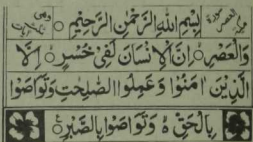 بِسْمِ اللهِ الرَّحْمٰنِ الرَّحِيْمِ
وَالْعَصْرِ ۙ اِنَّ الْاِنْسَانَ لَفِيْ خُسْرٍ ۙ اِلَّا
الَّذِيْنَ اٰمَنُوْا وَعَمِلُوا الصّٰلِحٰتِ وَتَوَاصَوْا
بِالْحَقِّ ۙ وَتَوَاصَوْا بِالصَّبْرِ ۧ